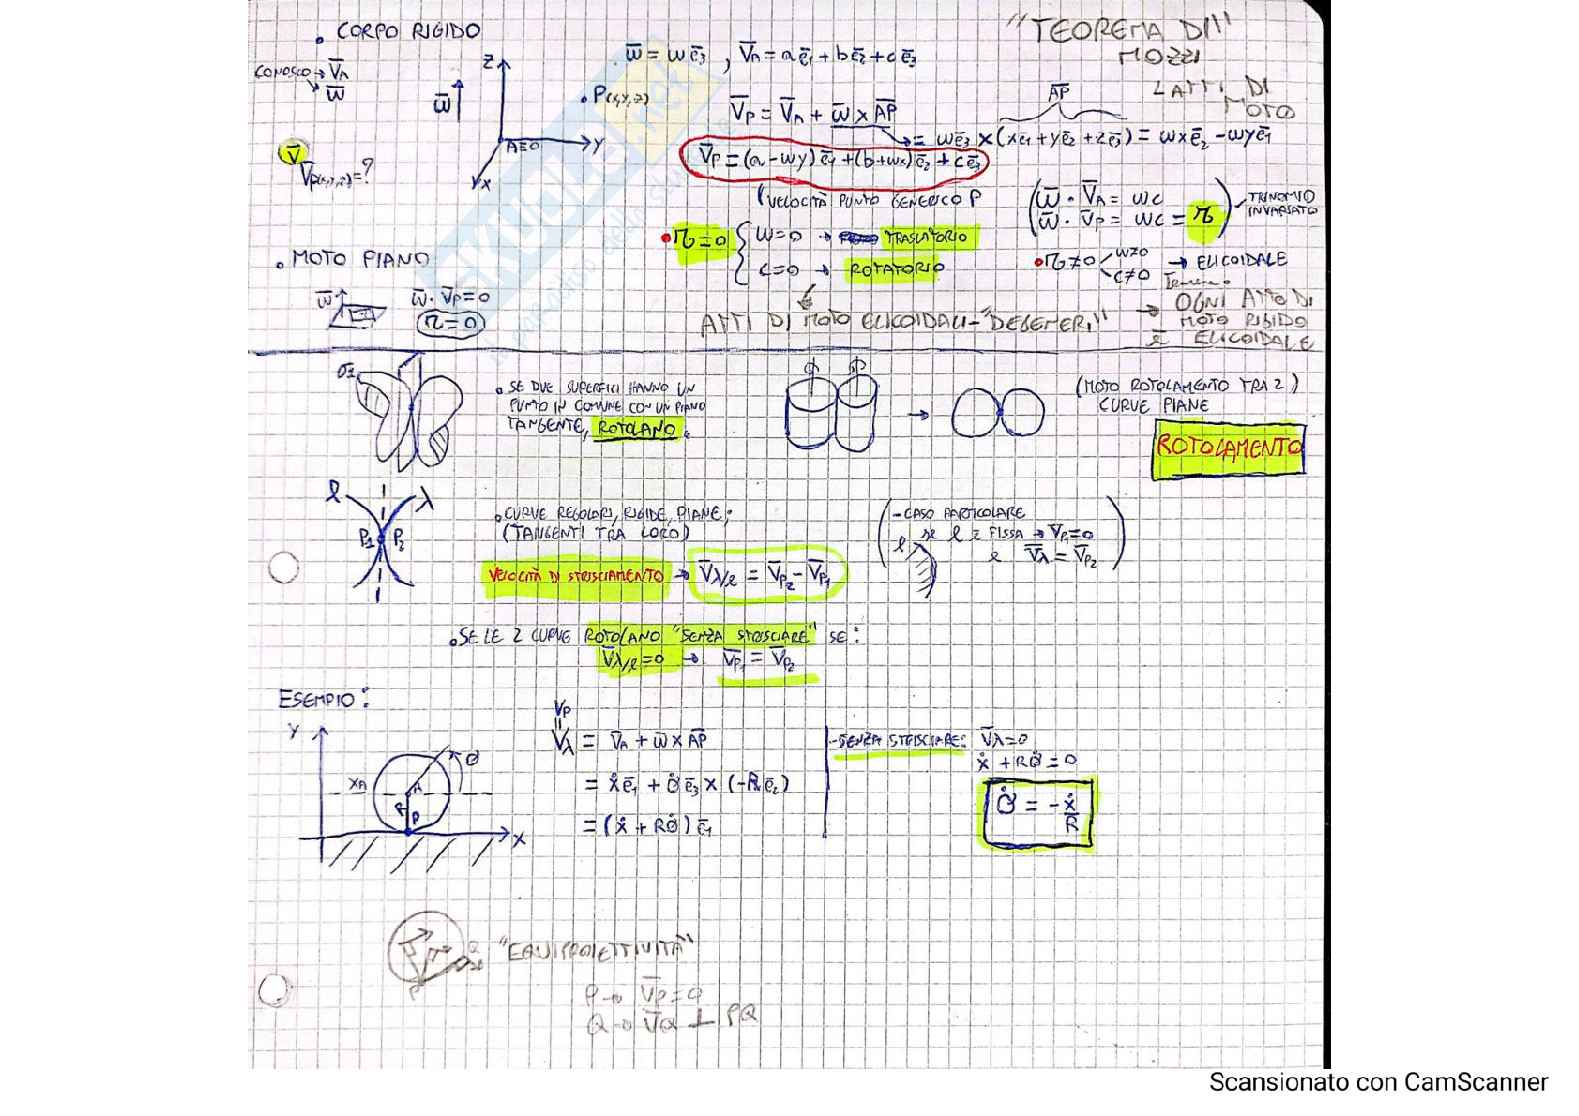 • CORPO RIGIDO
"TEOREMA DI"
MOZZI
L ATTI DI MOTO
CONOSCO → V̄A
→ ω̄
ω̄ = ωē3 , V̄A = aē1 + bē2 + cē3
Z
ω̄
P(x,y,z)
A≡O
Y
X
V̄
V̄P(x,y,z) = ?
V̄P = V̄A + ω̄ × AP
AP
= ωē3 × (xē1 + yē2 + zē3) = ωxē2 - ωyē1
V̄P = (a - ωy) ē1 + (b + ωx) ē2 + cē3
(VELOCITÀ PUNTO GENERICO P
(ω̄ · V̄A = ωc
ω̄ · V̄P = ωc = π) TRINOMIO INVARIATO
• π = 0 { ω = 0 → TRASLATORIO
c = 0 → ROTATORIO
• π ≠ 0 ω≠0 c≠0 → ELICOIDALE
• MOTO PIANO
ω̄
ω̄ · V̄P = 0
π = 0
ATTI DI MOTO ELICOIDALI - "DEGENERI"
→ OGNI ATTO DI
MOTO RIGIDO
È ELICOIDALE
σ1
• SE DUE SUPERFICI HANNO UN
PUNTO IN COMUNE CON UN PIANO
TANGENTE, ROTOLANO.
(MOTO ROTOLAMENTO TRA 2)
CURVE PIANE
ROTOLAMENTO
l λ
P1 P2
• CURVE REGOLARI, RIGIDE, PIANE;
(TANGENTI TRA LORO)
- CASO PARTICOLARE
se l è FISSA → V̄P1 = 0
e V̄λ = V̄P2
l
VELOCITÀ DI STRISCIAMENTO → V̄λ/l = V̄P2 - V̄P1
• SE LE 2 CURVE ROTOLANO "SENZA STRISCIARE" SE:
V̄λ/l = 0 → V̄P1 = V̄P2
ESEMPIO:
Y
XA
A
θ
R
P
X
VP
=
V̄λ = V̄A + ω̄ × AP
= ẋē1 + θ̇ē3 × (-Rē2)
= (ẋ + Rθ̇) ē1
- SENZA STRISCIARE: V̄λ = 0
ẋ + Rθ̇ = 0
θ̇ = -ẋ/R
Q
P
"EQUIPROIETTIVITÀ"
P → V̄P = 0
Q → V̄Q ⊥ PQ
Scansionato con CamScanner